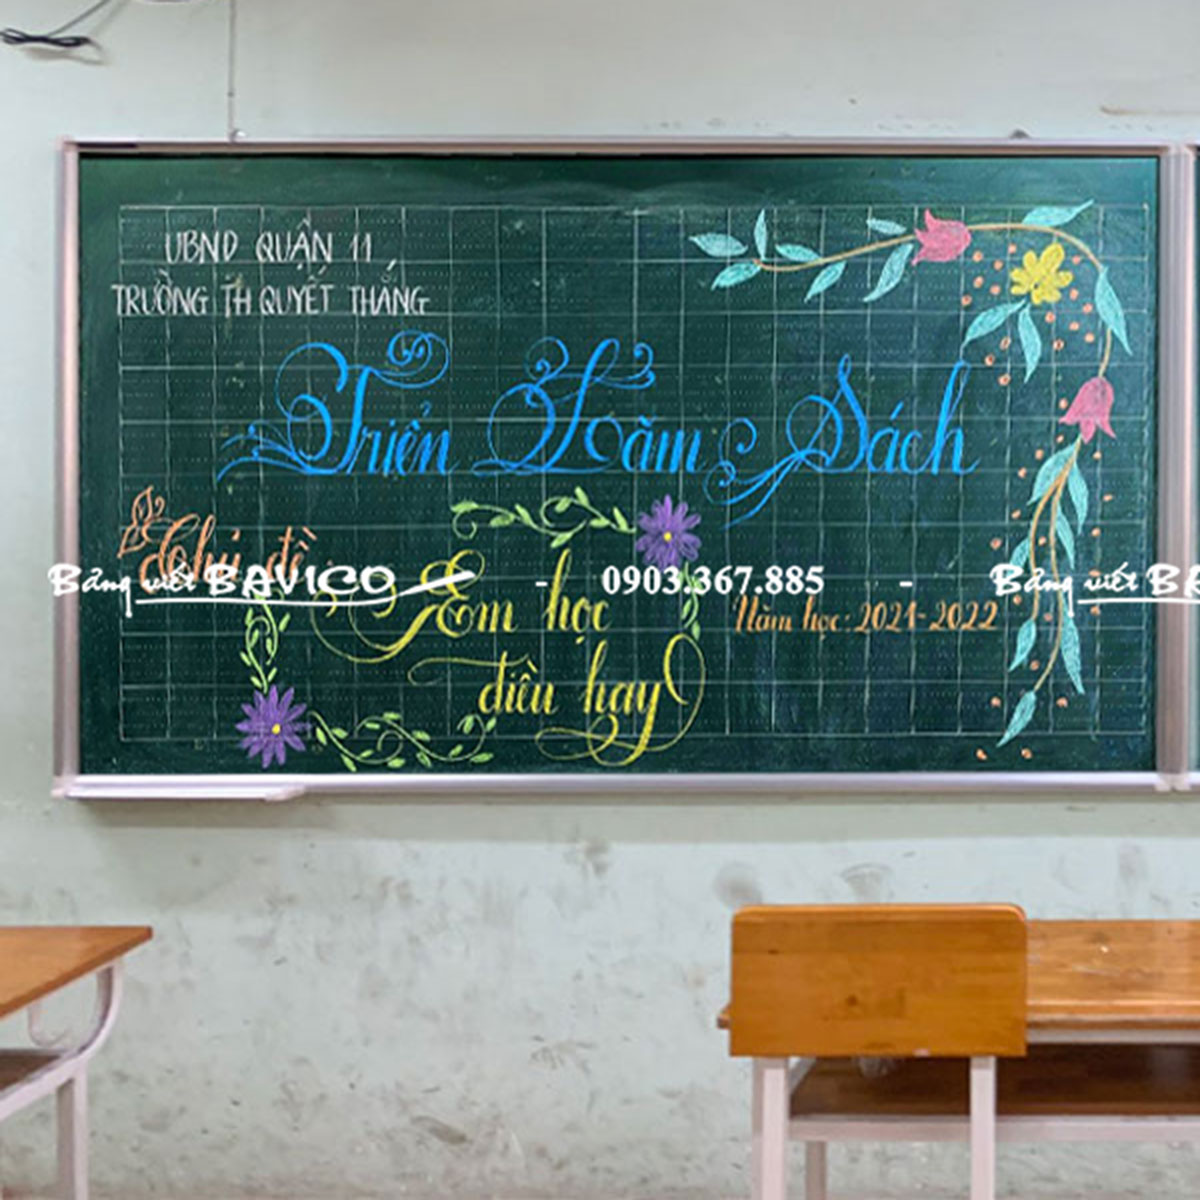 UBND QUẬN 11
TRƯỜNG TH QUYẾT THẮNG
Triển Lãm Sách
Chủ đề:
Bảng viết BAVICO - 0903.367.885 - Bảng viết BA
Em học
điều hay
Năm học: 2021-2022